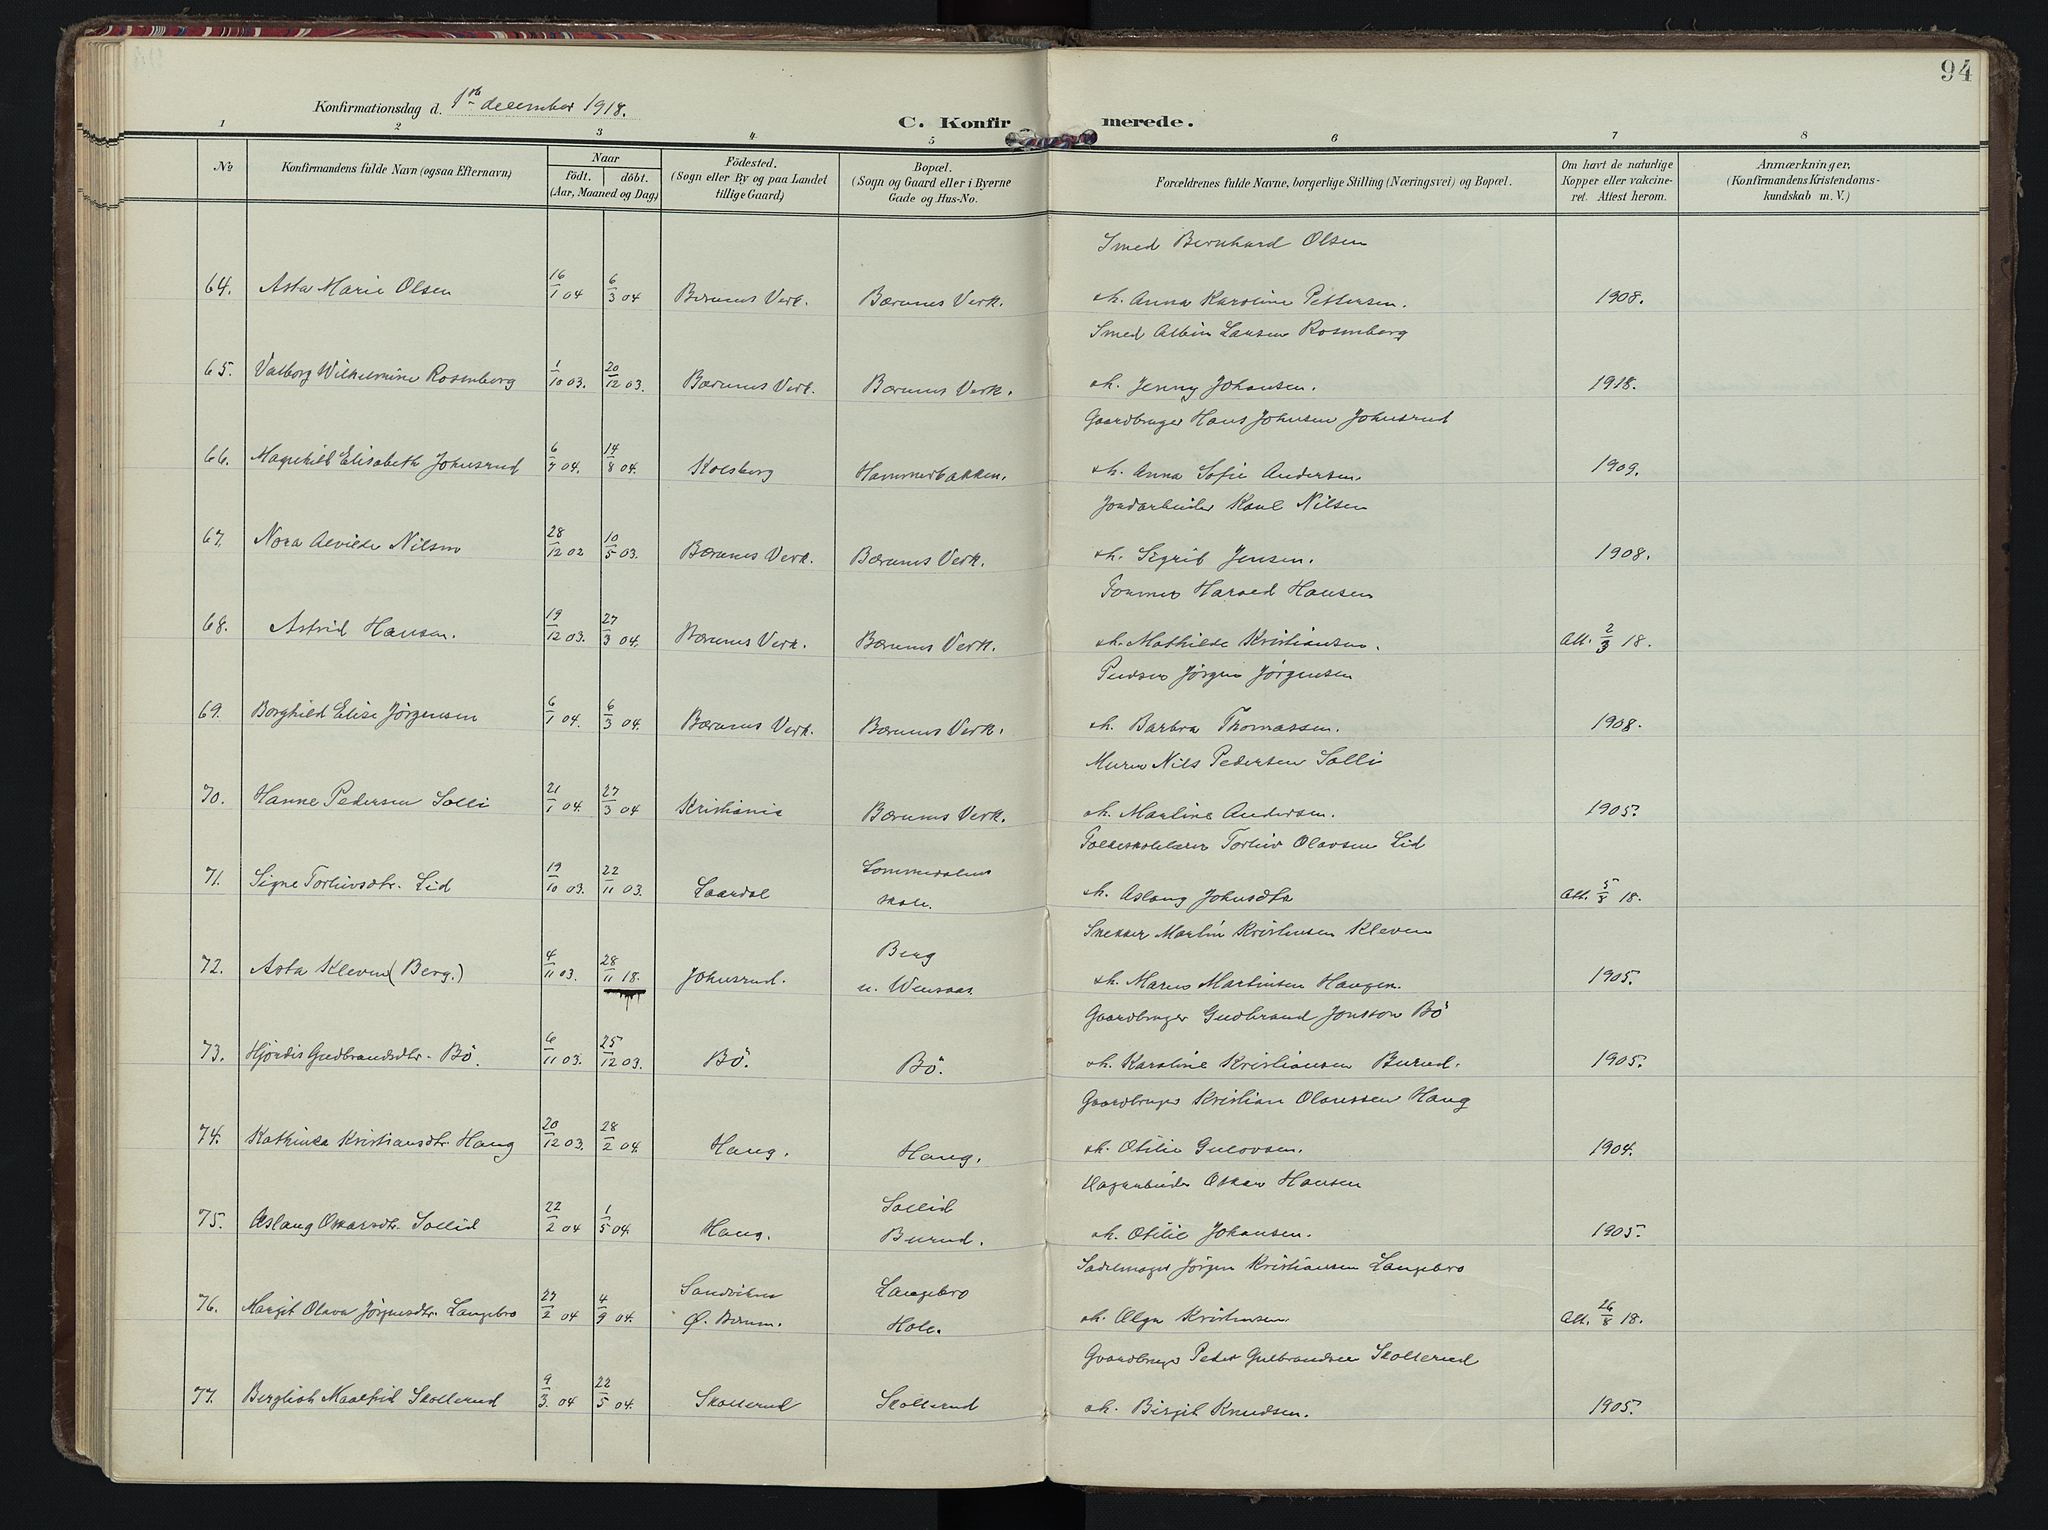 94
Konfirmationsdag d. 1ste december 1918.
C. Konfirmerede.
1 2 3 4 5 6 7 8
No
Konfirmandens fulde Navn (ogsaa Efternavn)
Naar
födt. döbt.
(Aar, Maaned og Dag)
Födested.
(Sogn eller By og paa Landet
tillige Gaard)
Bopæl.
(Sogn og Gaard eller i Byerne
Gade og Hus-No.
Forældrenes fulde Navne, borgerlige Stilling (Næringsvei) og Bopæl.
Om havt de naturlige
Kopper eller vakcine-
ret. Attest herom.
Anmærkninger.
(Konfirmandens Kristendoms-
kundskab m. V.)
Smed Bernhard Olsen
64. Asta Marie Olsen 16/1 04 6/3 04 Bærums Verk. Bærums Verk. oh. Anna Karoline Pettersen. 1908.
Smed Albin Larsen Rosenberg
65. Valborg Wilhelmine Rosenberg 1/10 03. 20/12 03. Bærums Verk. Bærums Verk. oh. Jenny Johansen. 1918.
Gaardbruger Hans Johnsen Johnsrud
66. Magnhild Elisabeth Johnsrud 6/7 04. 14/8 04. Kolsberg Hammerbakken. oh. Anna Sofie Andersen. 1909.
Jordarbeider Karl Nilsen
67. Nora Alvilde Nilsen 28/12 02 10/5 03. Bærums Verk. Bærums Verk. oh. Sigrid Jensen. 1908.
Tømmer Harald Hansen
68. Astrid Hansen. 19/12 03. 27/3 04. Bærums Verk. Bærums Verk. oh. Mathilde Kristiansen. Att. 2/3 18.
Pudser Jørgen Jørgensen
69. Borghild Elise Jørgensen 6/1 04. 6/3 04. Bærums Verk. Bærums Verk. oh. Barbra Thomassen. 1908.
Murer Nils Pedersen Solli
70. Hanne Pedersen Solli 21/1 04. 27/3 04 Kristiania Bærums Verk. oh. Martine Andersen. 1905.
Folkeskolelærer Torleiv Olavsen Lid
71. Signe Torleivsdtr. Lid 19/10 03. 22/11 03. Laardal Lommedalens
skole. oh. Aslaug Johnsdtr Att. 5/8 18.
Snekker Martin Kristensen Kleven
72. Asta Kleven (Berg.) 4/11 03. 28/11 18. Johnsrud. Berg
u. Wensaas. oh. Maren Martinsen Haugen. 1905.
Gaardbruger Gudbrand Jonsson Bö
73. Hjördis Gudbrandsdtr. Bö. 6/11 03. 25/12 03. Bö. Bö. oh. Karoline Kristiansen Burud. 1905.
Gaardbruger Kristian Olaussen Haug
74. Kathinka Kristiansdtr. Haug 20/12 03. 28/2 04. Haug. Haug. oh. Otilie Gulovsen. 1904.
Dagarbeider Oskar Hansen
75. Aslaug Oskarsdtr. Sollid 22/2 04 1/5 04. Haug. Sollid
Burud. oh. Otilie Johansen. 1905.
Sadelmager Jørgen Kristiansen Langebro
76. Margit Olava Jörgensdtr. Langebro 27/2 04 4/9 04. Sandviken
Ø. Bærum. Langebro
Hole. oh. Olga Kristensen. Att. 26/8 18.
Gaardbruger Peder Gulbrandsen Skollerud
77. Bergliot Maalfrid Skollerud 9/3. 04 22/5 04. Skollerud Skollerud oh. Birgit Knudsen. 1905.